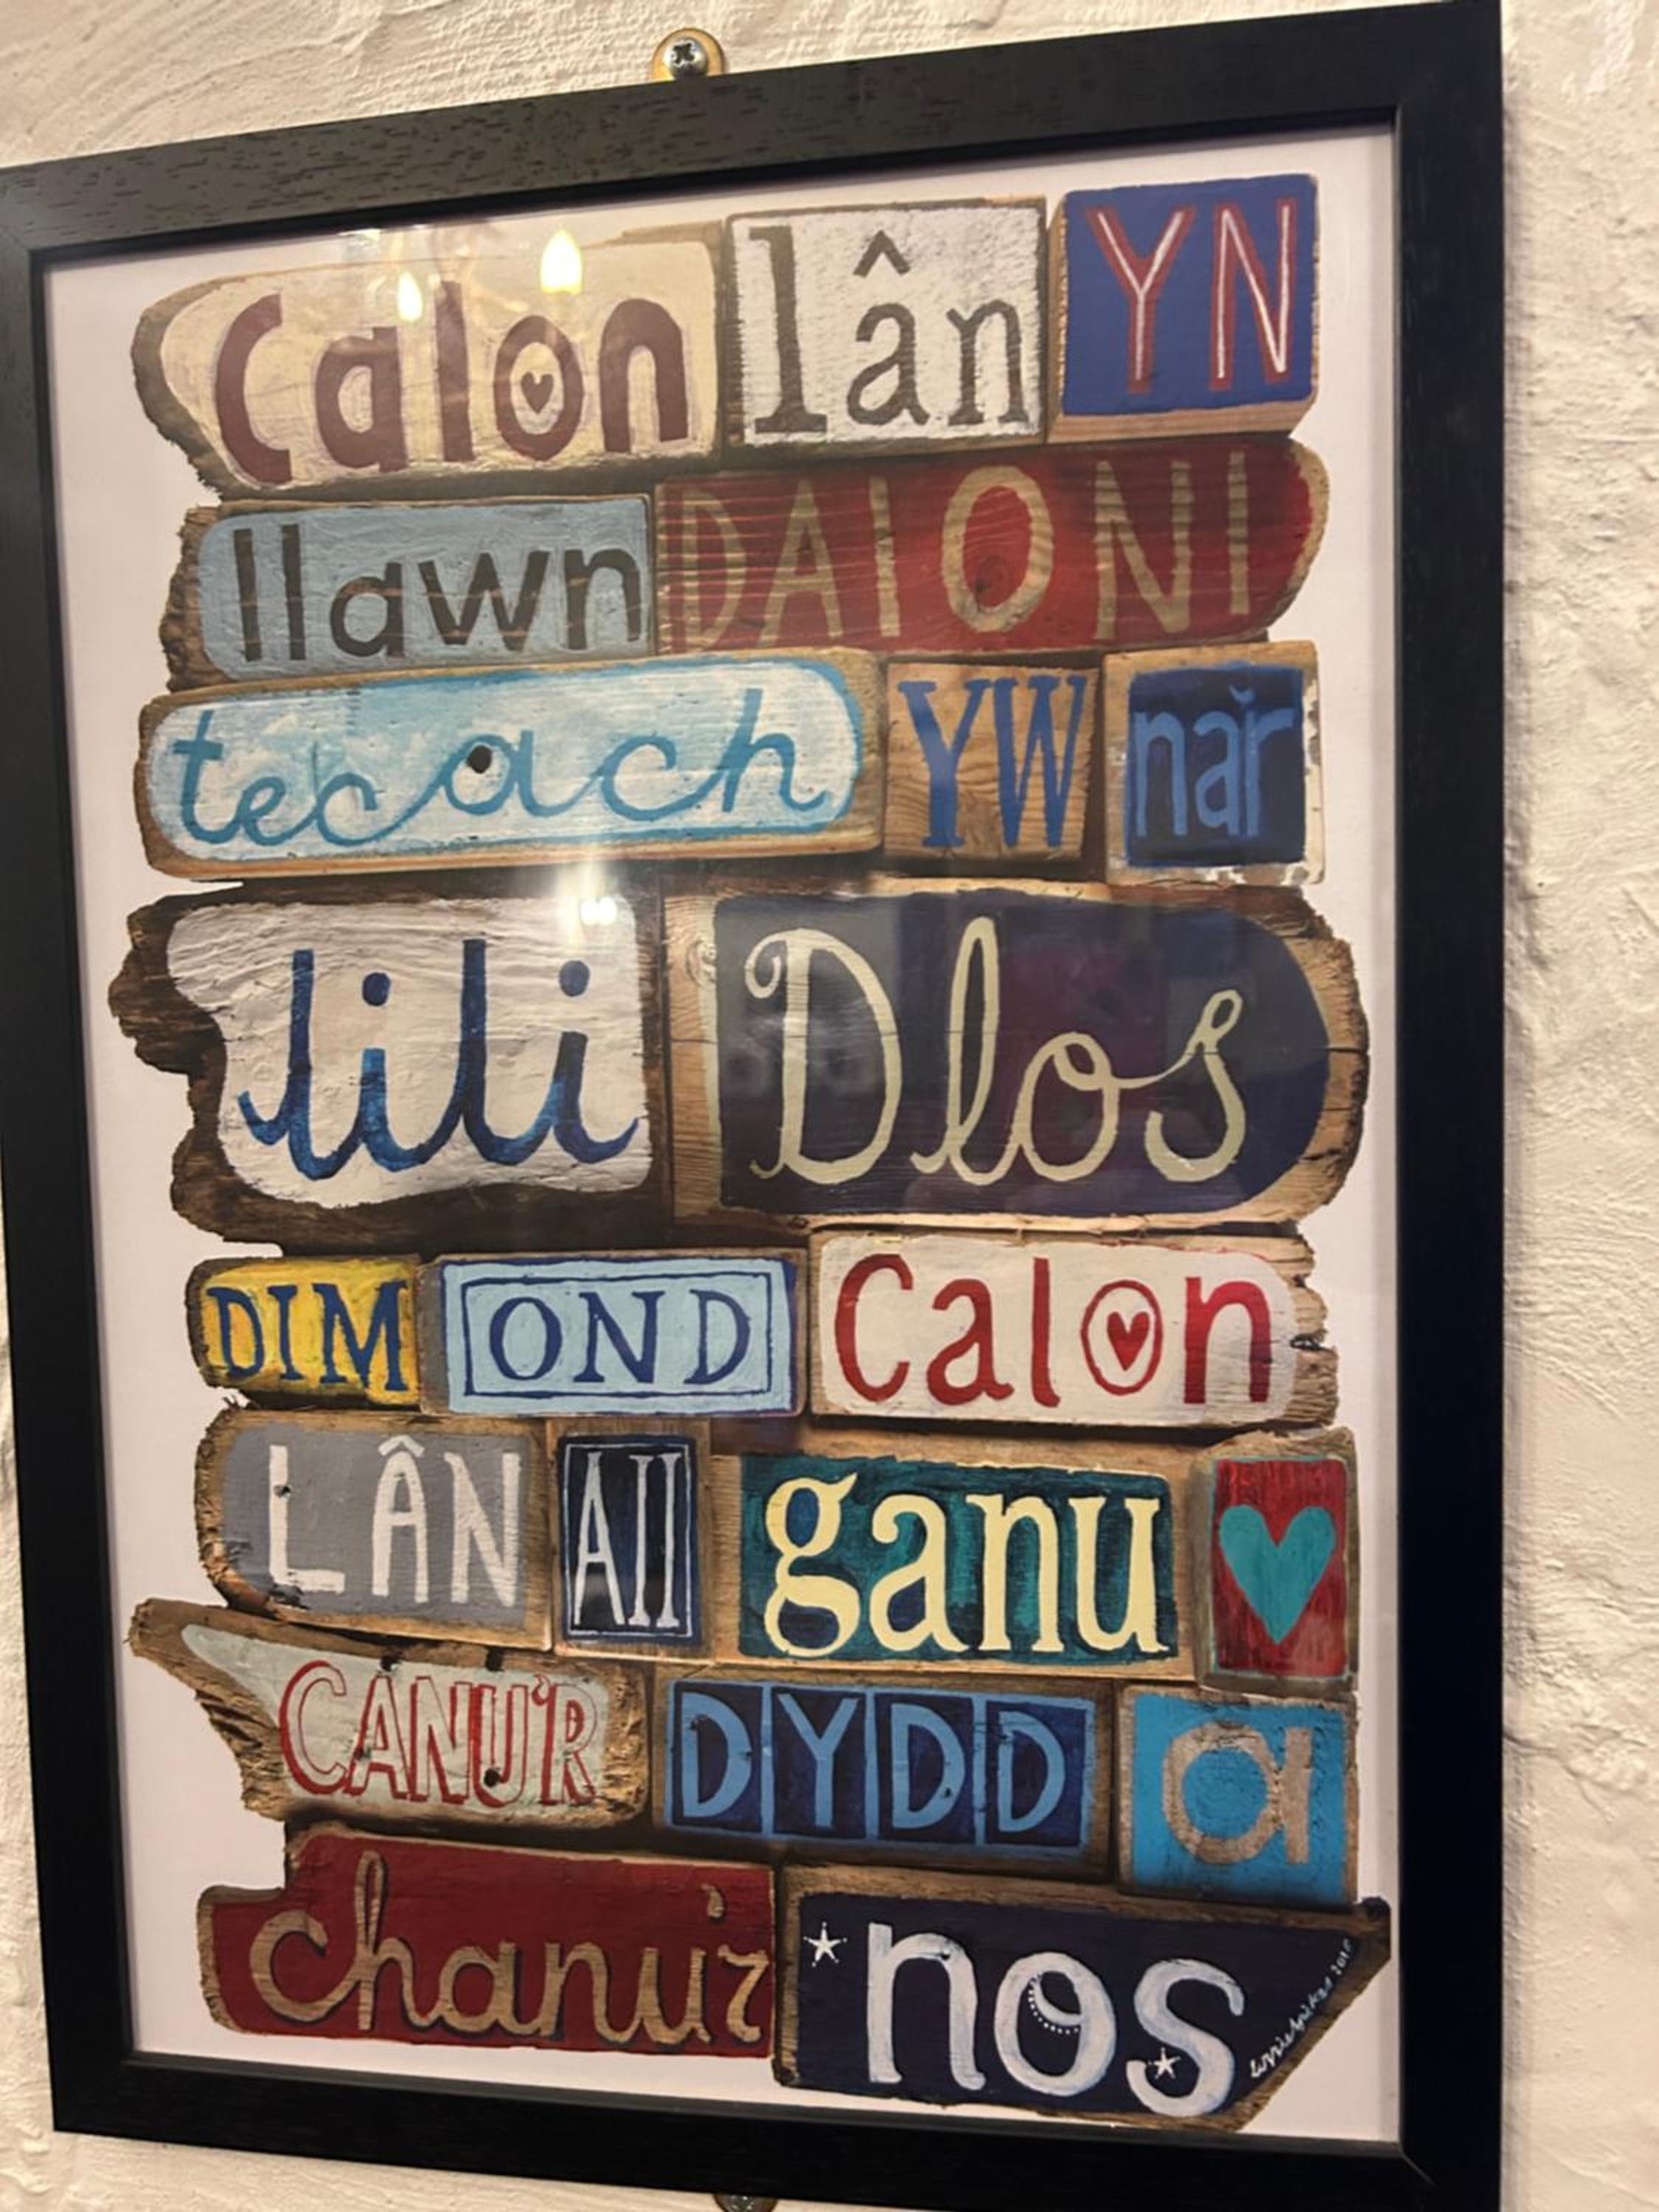 Calon lân YN
llawn DAIONI
tecach YW na'r
lili Dlos
DIM OND Calon
LÂN All ganu
CANU'R DYDD a
chanu'r nos